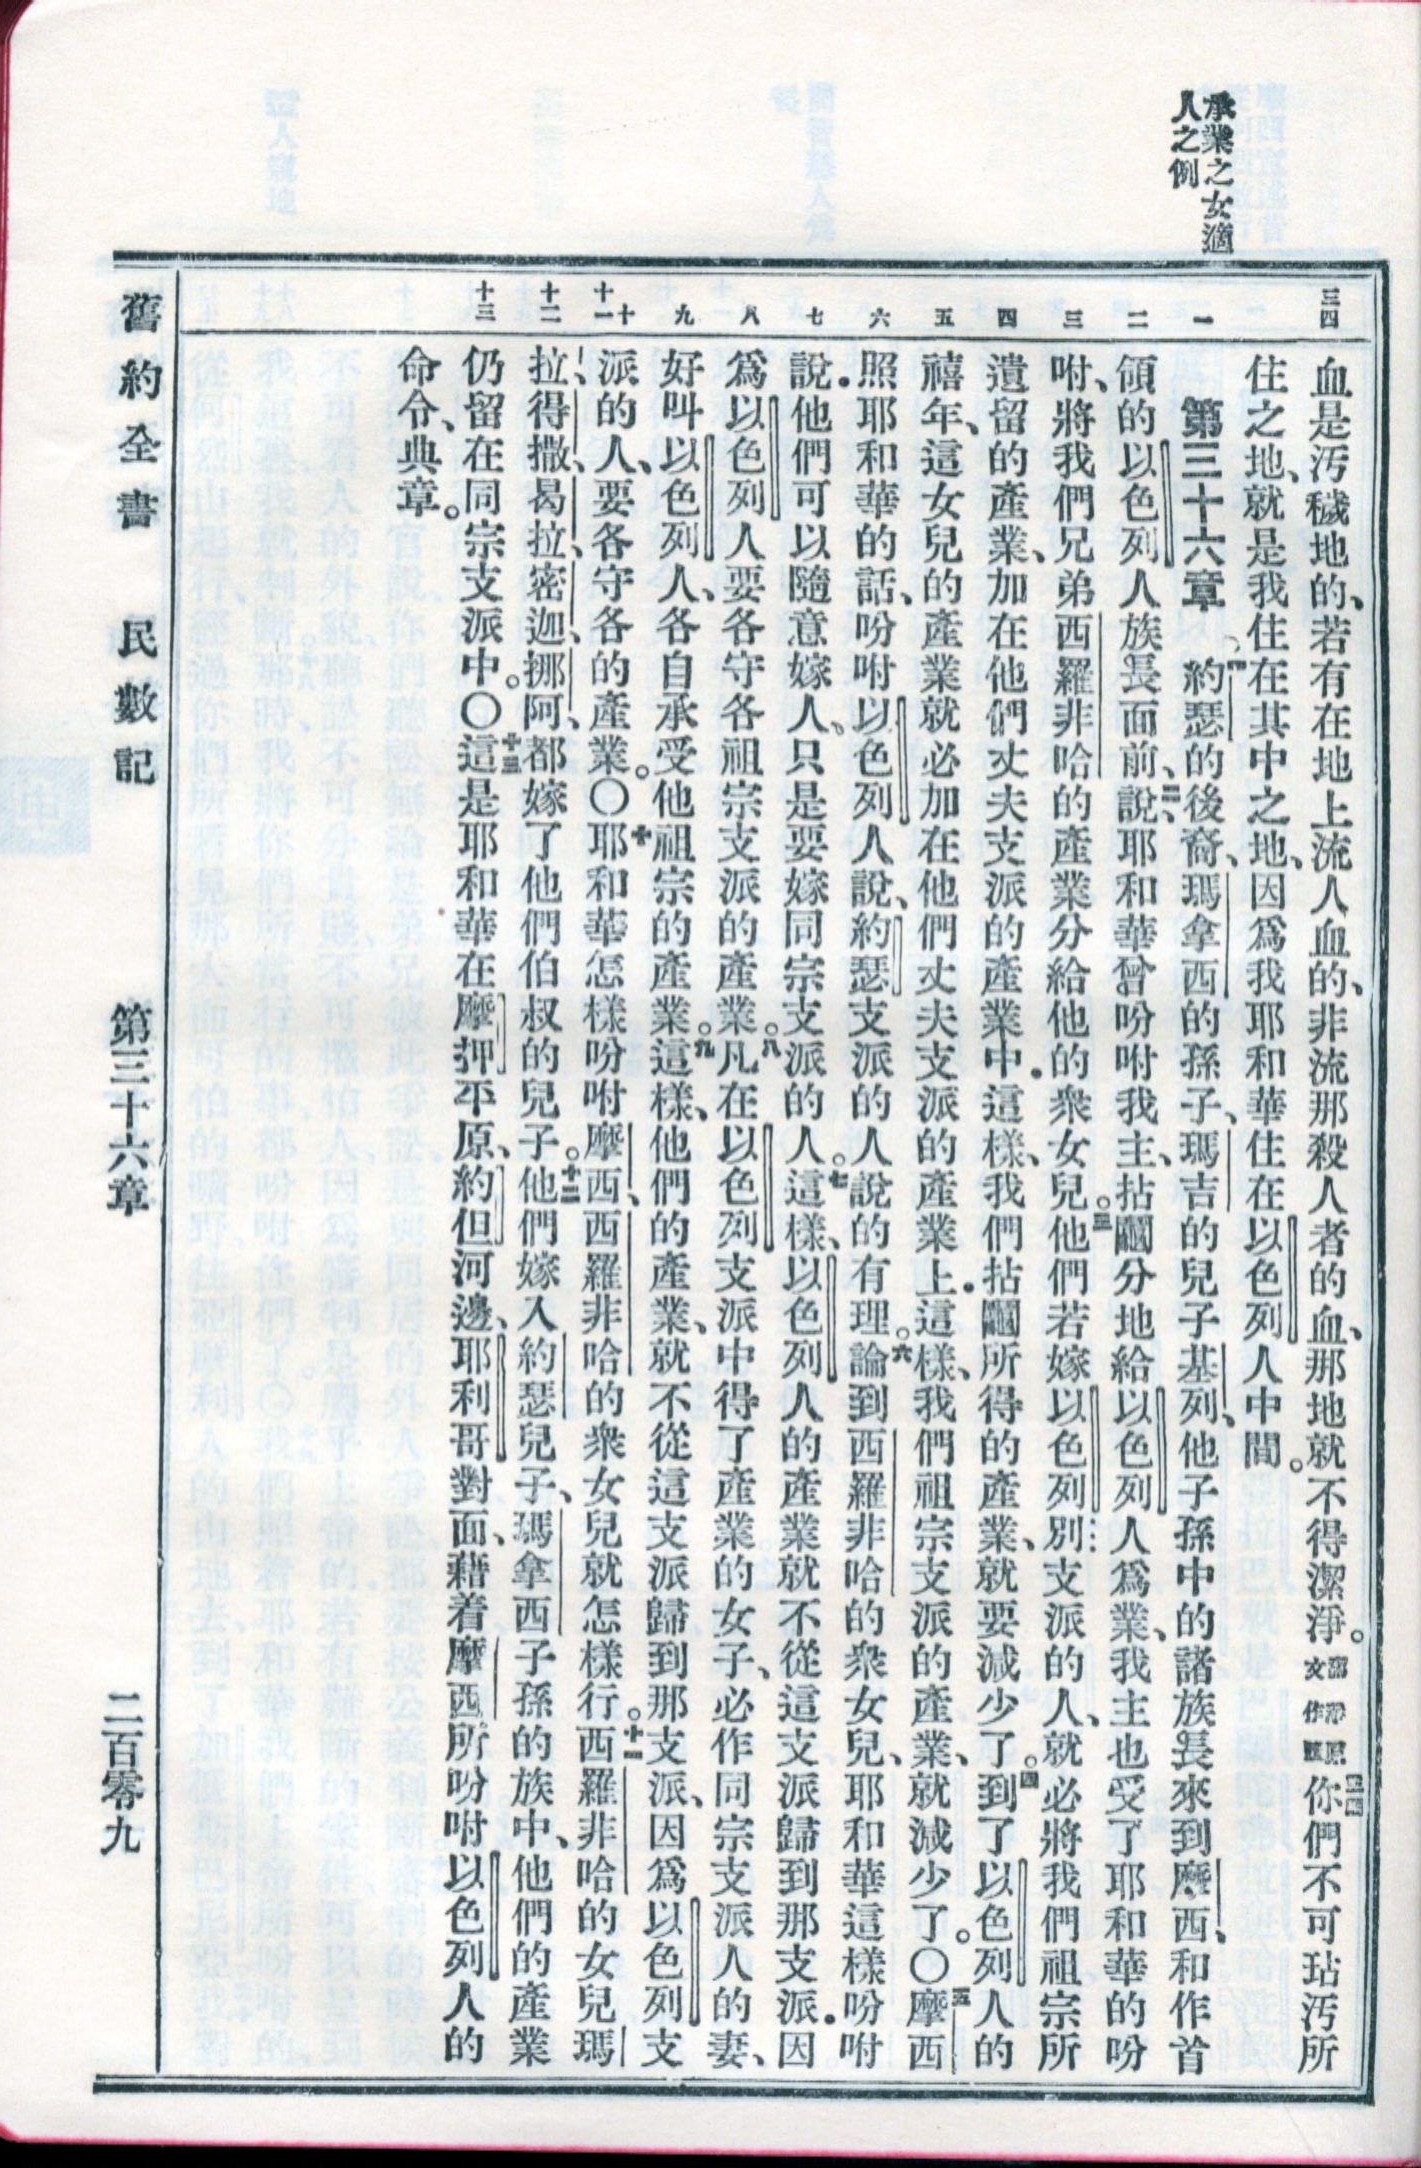 承業之女適
人之例
三四
一
二
三
四
五
六
七
八
九
十
十一
十二
十三
血是汚穢地的、若有在地上流人血的、非流那殺人者的血、那地就不得潔淨。潔淨原文作贖三四你們不可玷汚所
住之地、就是我住在其中之地、因爲我耶和華住在以色列人中間。
第三十六章 約瑟的後裔、瑪拿西的孫子、瑪吉的兒子基列、他子孫中的諸族長來到摩西、和作首
領的以色列人族長面前、二說、耶和華曾吩咐我主、拈鬮分地給以色列人爲業、我主也受了耶和華的吩
咐、將我們兄弟西羅非哈的產業分給他的衆女兒。三他們若嫁以色列別支派的人、就必將我們祖宗所
遺留的產業、加在他們丈夫支派的產業中.這樣、我們拈鬮所得的產業、就要減少了。四到了以色列人的
禧年、這女兒的產業就必加在他們丈夫支派的產業上.這樣、我們祖宗支派的產業、就減少了。〇五摩西
照耶和華的話、吩咐以色列人說、約瑟支派的人說的有理。六論到西羅非哈的衆女兒、耶和華這樣吩咐
說.他們可以隨意嫁人、只是要嫁同宗支派的人。七這樣、以色列人的產業就不從這支派歸到那支派.因
爲以色列人要各守各祖宗支派的產業。八凡在以色列支派中得了產業的女子、必作同宗支派人的妻、
好叫以色列人、各自承受他祖宗的產業。九這樣、他們的產業、就不從這支派歸到那支派、因爲以色列支
派的人、要各守各的產業。〇十耶和華怎樣吩咐摩西、西羅非哈的衆女兒就怎樣行。十一西羅非哈的女兒瑪
拉、得撒、曷拉、密迦、挪阿、都嫁了他們伯叔的兒子。十二他們嫁入約瑟兒子、瑪拿西子孫的族中、他們的產業
仍留在同宗支派中。〇十三這是耶和華在摩押平原、約但河邊、耶利哥對面、藉着摩西所吩咐以色列人的
命令、典章。
舊約全書 民數記 第三十六章 二百零九